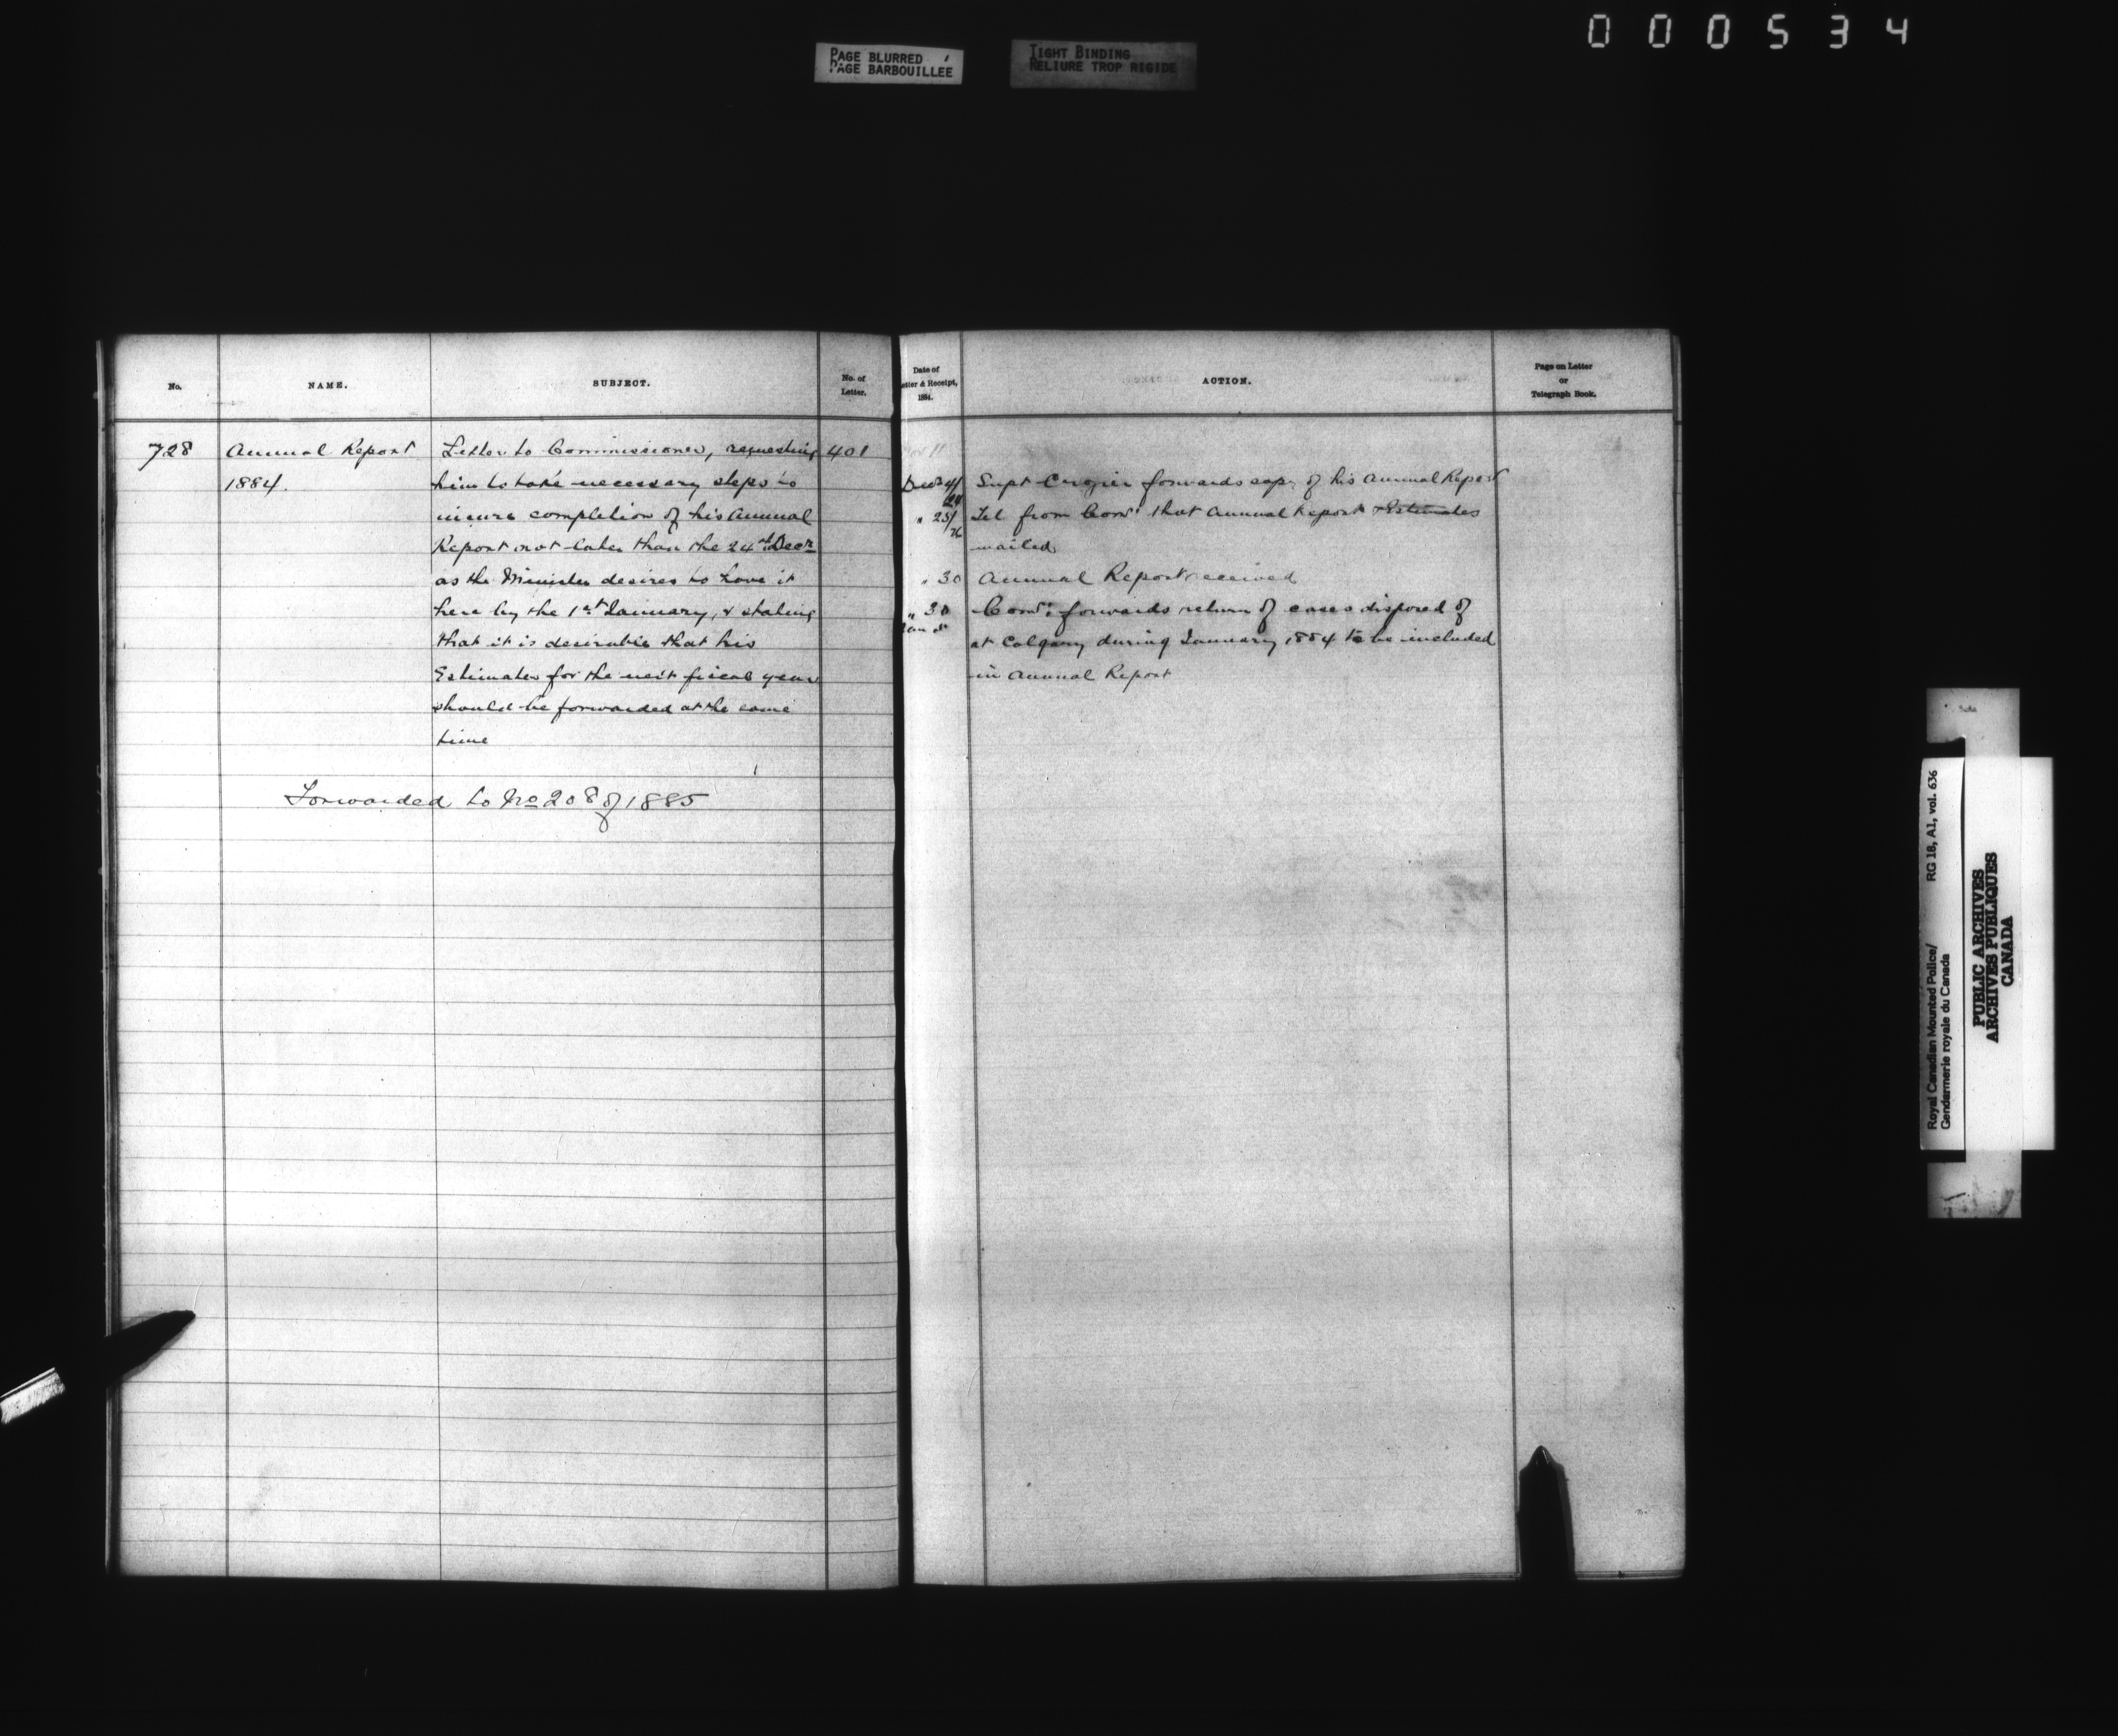 000534
PAGE BLURRED
PAGE BARBOUILLEE
TIGHT BINDING
RELIURE TROP RIGIDE
No.
NAME.
SUBJECT.
No. of
Letter.
728
Annual Report
1884.
Letter to Commissioner, requesting
him to take necessary steps to
insure completion of his Annual
Report not later than the 24th Decr
as the Minister desires to have it
here by the 1st January, & stating
that it is desirable that his
Estimates for the next fiscal year
should be forwarded at the same
time
401
Forwarded to No 208 of 1885
Date of
etter & Receipt,
1884.
ACTION.
Page on Letter
or
Telegraph Book.
11
Decr 4/24 Supt Crozier forwards copy of his Annual Report
" 25/26 Tel from Comr: that Annual Report & Estimates
mailed
" 30 Annual Report received
" 30 Comr: forwards return of cases disposed of
Jan 8 at Calgary during January 1884 to be included
in Annual Report
Royal Canadian Mounted Police/
Gendarmerie royale du Canada
RG 18, A1, vol. 636
PUBLIC ARCHIVES
ARCHIVES PUBLIQUES
CANADA